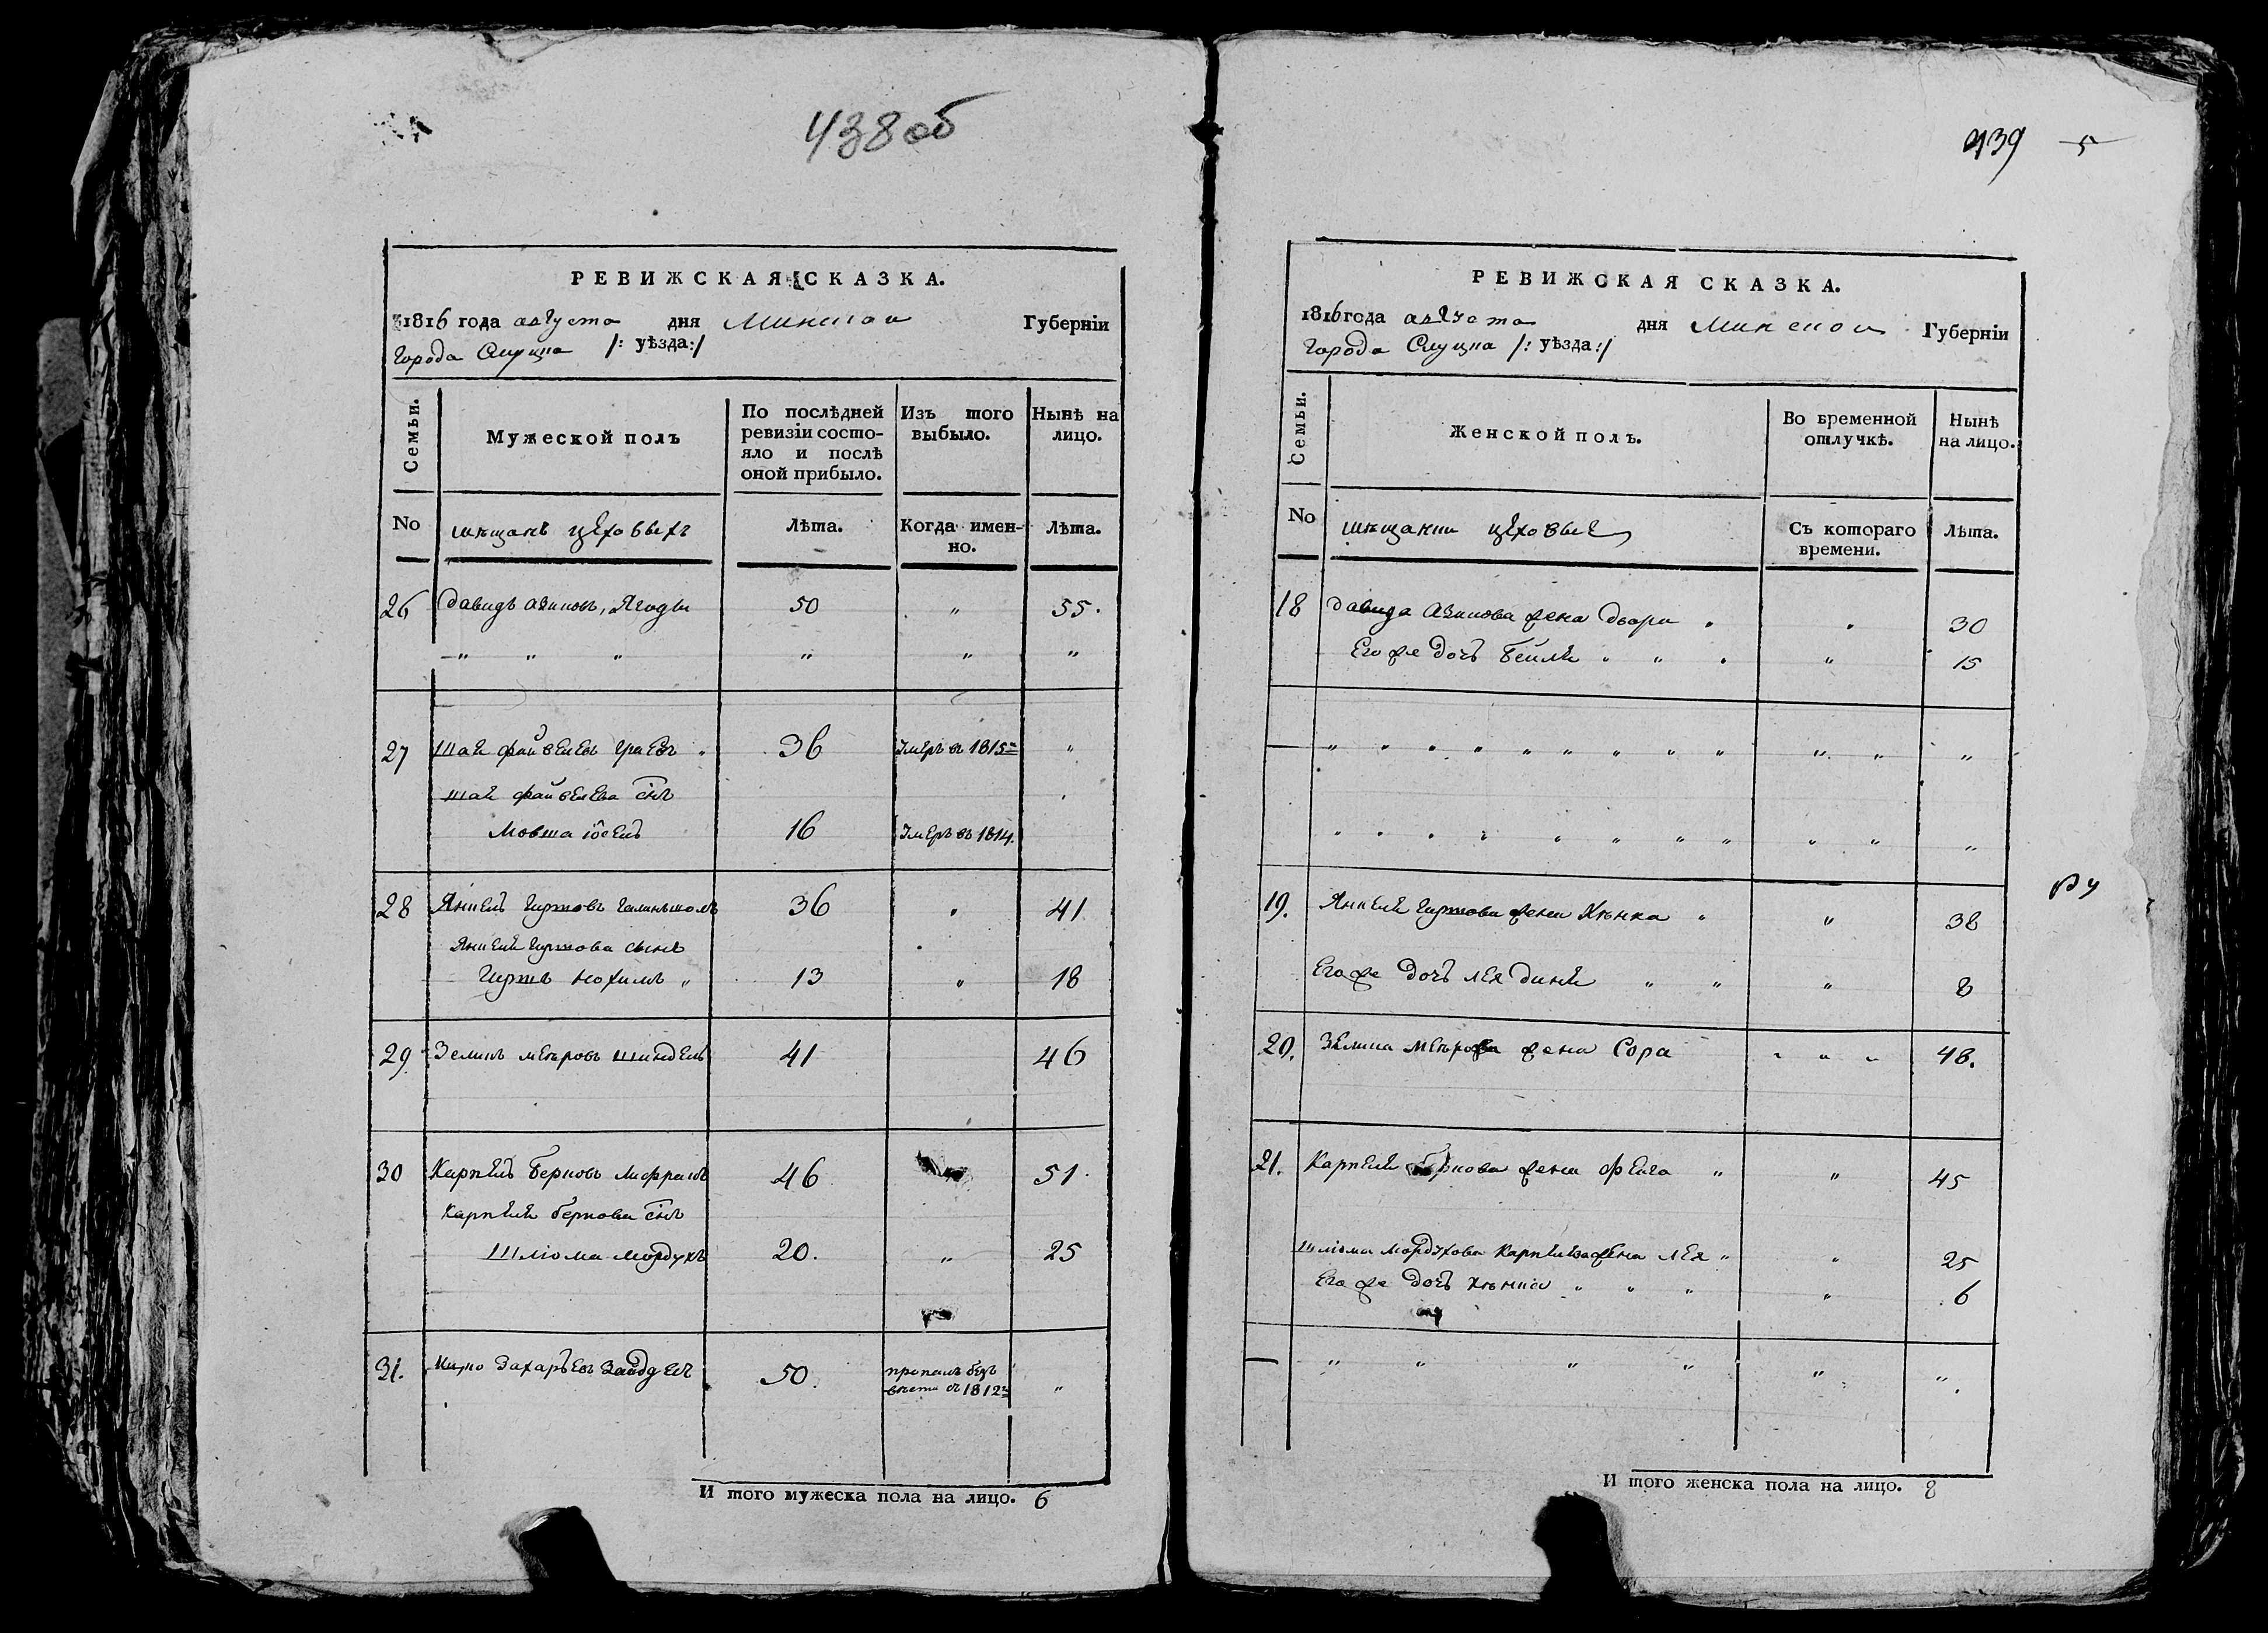 438 об
РЕВИЖСКАЯ СКАЗКА.
1816 года августа дня Минской Губерніи
города Слуцка /: уѣзда:/
Семьи.
Мужеской полъ
По послѣдней ревизіи состояло и послѣ оной прибыло.
Изъ того выбыло.
Нынѣ на лицо.
No
мѣщанъ цеховыхъ
Лѣта.
Когда именно.
Лѣта.
26 Давидъ Ягоды 50 " 55.
" " " " " "
27 Шая Файвелевъ 36 умеръ въ 1815 "
Шая Файвелева снъ
Мовша Іосель 16 умеръ въ 1814.
28 Янкель Гиршовъ 36 " 41
Янкеля Гиршова сынъ
Гиршъ Нохимъ " 13 " 18
29 Зеликъ Меѣровъ Шиндель 41 46
30 Карпель Берковъ 46 51.
Карпеля Беркова снъ
Шліома Мордухъ 20. " 25
31. Захарьевъ Зайдель 50. пропалъ безъ вѣсти въ 1812 "
И того мужеска пола на лицо. 6
439 5
РЕВИЖСКАЯ СКАЗКА.
1816 года августа дня Минской Губерніи
города Слуцка /: уѣзда:/
Семьи.
Женской полъ.
Во временной отлучкѣ.
Нынѣ на лицо.
No
мѣщанки цеховые
Съ котораго времени.
Лѣта.
18 Давида жена Двора " " 30
Его же дочь Бейля " " " " 15
" " " " " " " " " " " "
" " " " " " " " " " "
19. Янкеля Гиршова жена Хѣнка " " 38
Его же дочь Лея Диня " " " 8
20. Зелика Меѣрова жена Сора " " " 48.
21. Карпеля Беркова жена Фейга " " 45
Шліома Мордухова Карпеля жена Лея " " 25
Его же дочь Хѣнка " " " " 6
" " " " " "
И того женска пола на лицо. 8